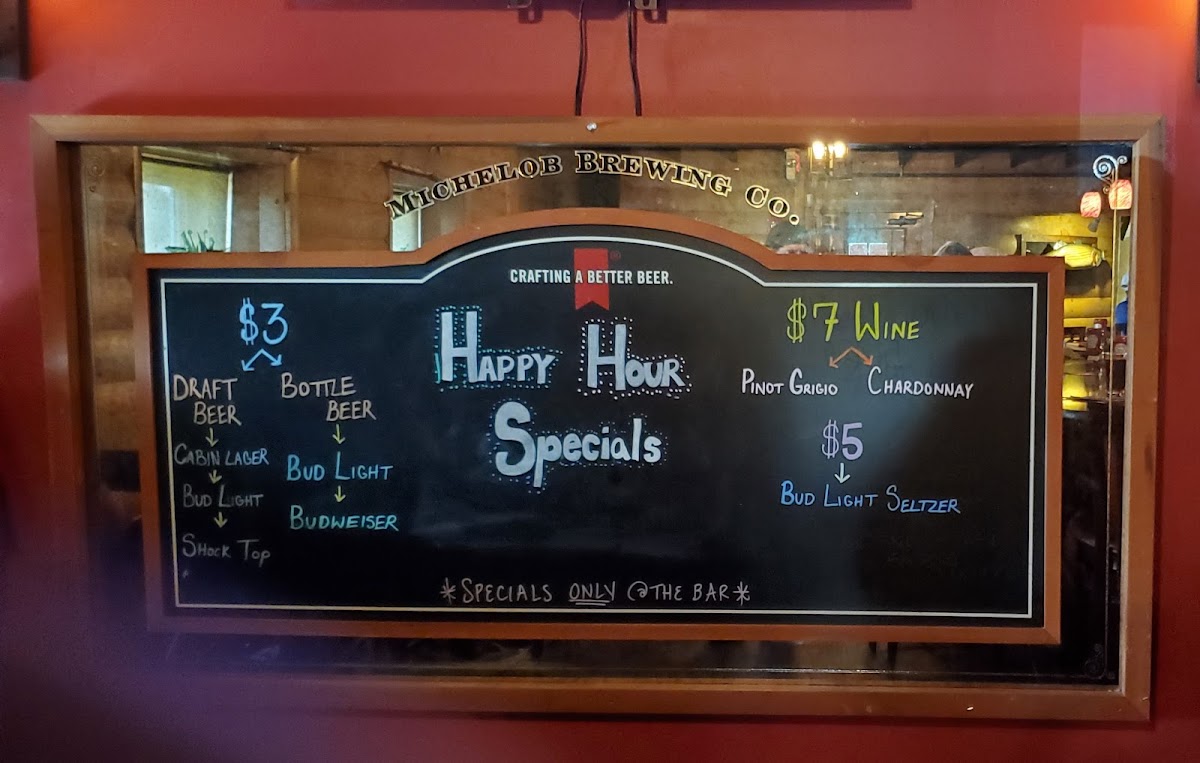 MICHELOB BREWING CO.
CRAFTING A BETTER BEER.
HAPPY HOUR
Specials
$3
DRAFT
BEER
CABIN LAGER
BUD LIGHT
SHOCK TOP
BOTTLE
BEER
BUD LIGHT
BUDWEISER
$7 WINE
PINOT GRIGIO
CHARDONNAY
$5
BUD LIGHT SELTZER
*SPECIALS ONLY @ THE BAR*